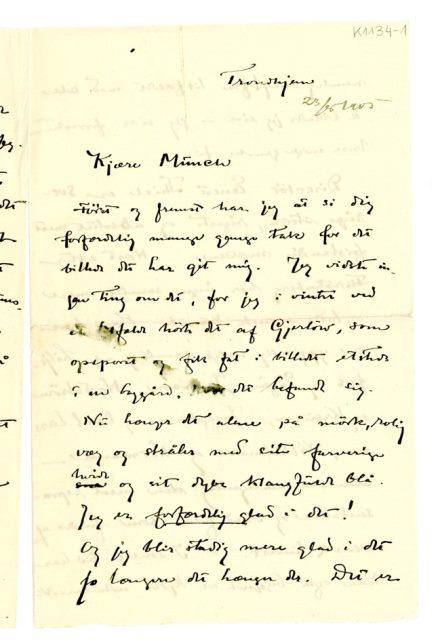 K1134-1
Trondhjem
23/
Kjære Munch
Først og fremst har jeg at si dig
forfærdelig mange gange tak for det
billede du har git mig. Jeg vidste in-
gen ting om det, før jeg i vinter ved
et hørte det af Gjerløv, som
opsporet og fik fat i billedet etsteds
i en bygård, det befandt sig.
Nu hænger det alene på mørk, rolig
væg og stråler med sit farverige
hvide
og sit dybe klangfulde blå.
Jeg er forfærdelig glad i det!
Og jeg blir stadig mere glad i det
jo længere det hænger der. Det er